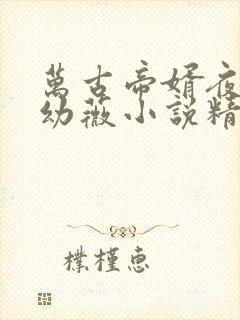 萬古帝婿夜
幼薇小說精
樸槿惠